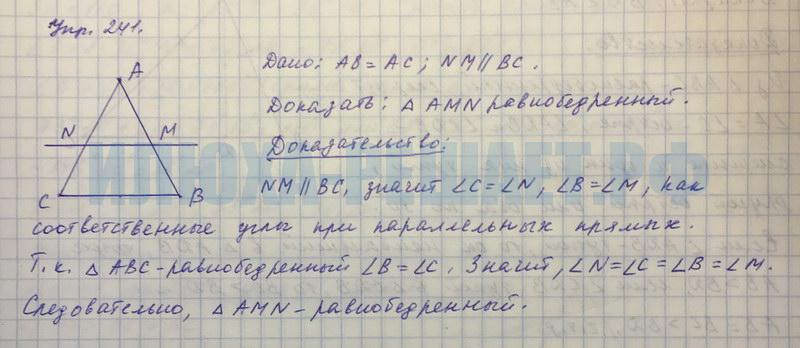 Упр. 241.
A
N
M
C
B
Дано: AB = AC; NM || BC.
Доказать: △ AMN равнобедренный.
Доказательство:
NM || BC, значит ∠C = ∠N, ∠B = ∠M, как
соответственные углы при параллельных прямых.
Т.к. △ ABC - равнобедренный ∠B = ∠C. Значит, ∠N = ∠C = ∠B = ∠M.
Следовательно, △ AMN - равнобедренный.